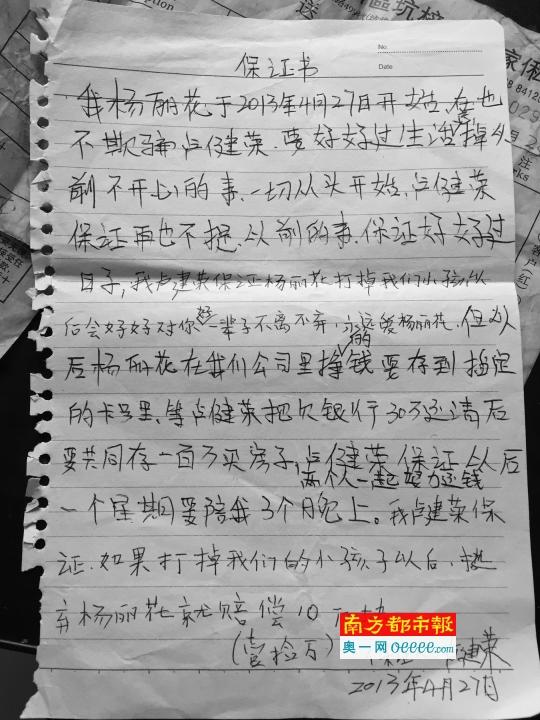 No.
Date
保证书
我杨丽花于2013年4月27日开始,在也
不欺骗卢健荣.要好好过生活掉从
前不开心的事.一切从头开始,卢健荣
保证再也不提,从前的事.保证好好过
日子,我卢健荣保证杨丽花打掉我们小孩以
后会好好对你好一辈子不离不弃,永远爱杨丽花.但以
后杨丽花在我们公司里挣的钱要存到指定
的卡号里.等卢健荣把欠银行30万还清后
要共同存一百万买房子,卢健荣保证从后
两个人一起努力还钱
一个星期要陪我3个月晚上。我卢健荣保
证.如果打掉我们的小孩子以后.抛
弃杨丽花就赔偿10万
(壹拾万)
健荣
2013年4月27日
南方都市報
奥一网 oeeee.com